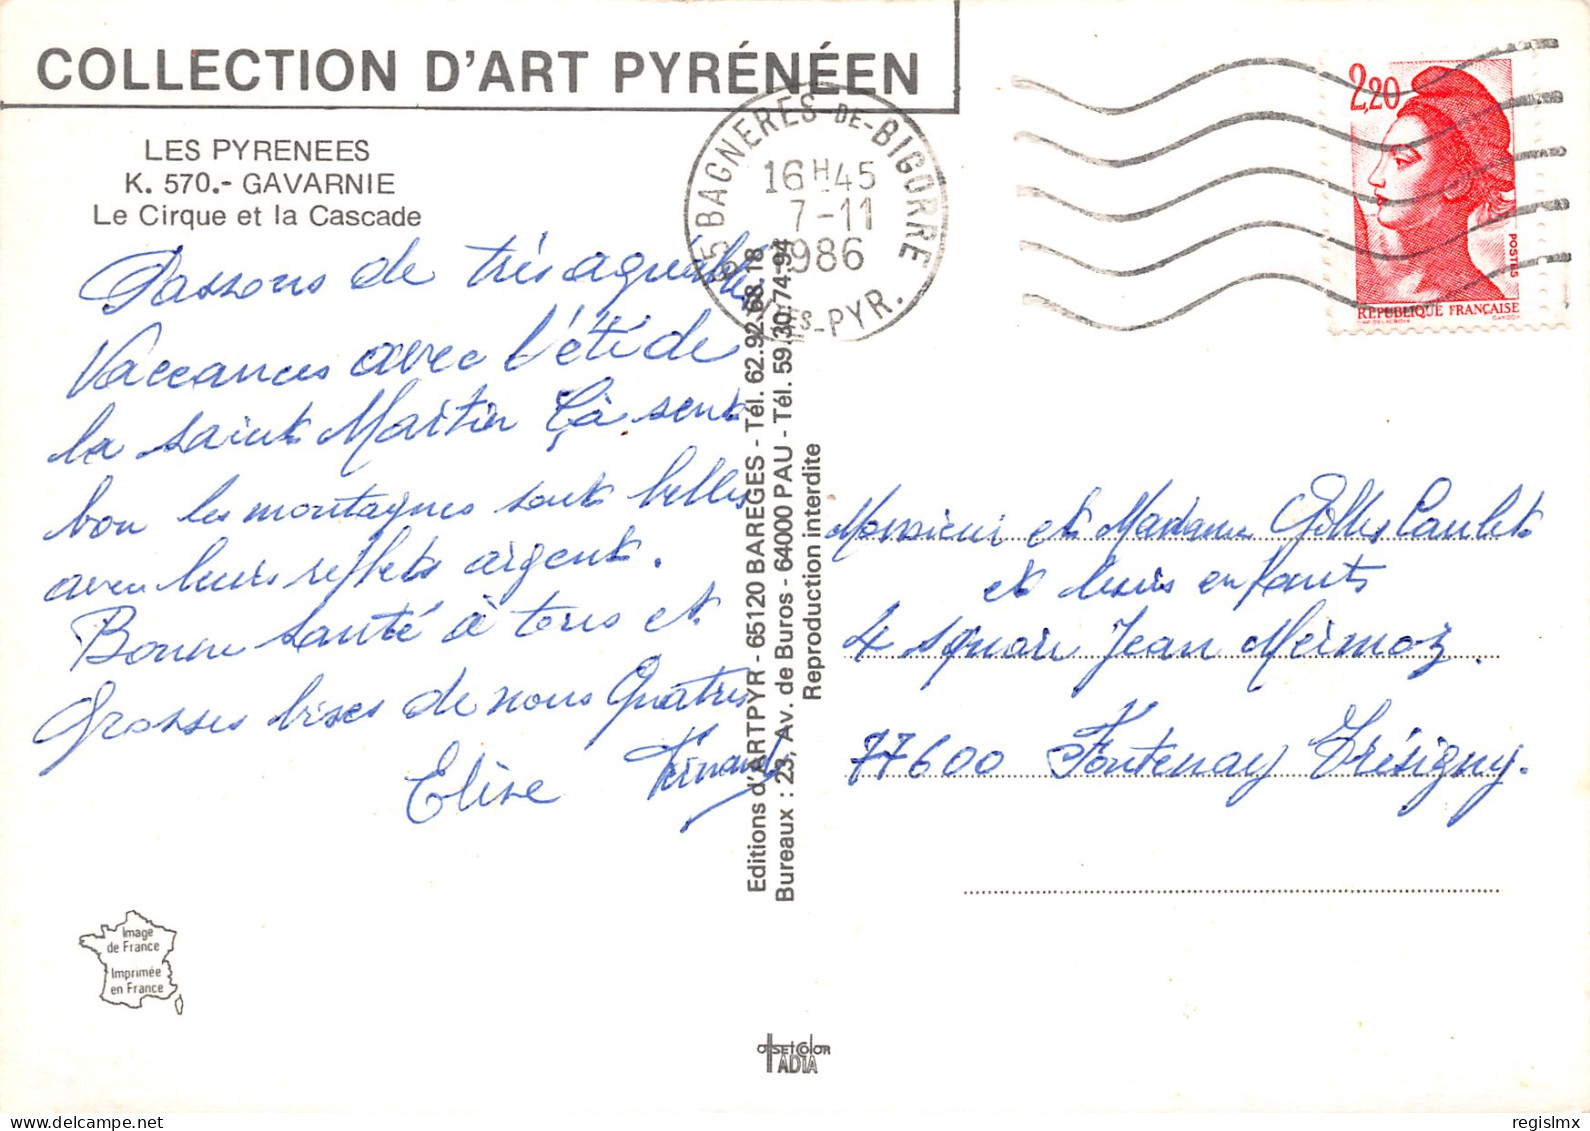 COLLECTION D'ART PYRÉNÉEN
LES PYRENEES
K. 570.- GAVARNIE
Le Cirque et la Cascade
Passons de très agréables
Vaccances avec l'été de
la saint Martin Çà sent
bon les montagnes sont belles
avec leurs reflets argent.
Bonne santé à tous et
Grosses bises de nous Quatres
Elise Fernand
Image
de France
Imprimée
en France
65 BAGNERES-DE-BIGORRE
16H45
7-11
1986
HTES-PYR.
2,20
POSTES
REPUBLIQUE FRANÇAISE
CAP. DELACROIX GANDON
Editions d'ARTPYR - 65120 BAREGES - Tél. 62.92.68.18
Bureaux : 23, Av. de Buros - 64000 PAU - Tél. 59.30.74.94
Reproduction interdite
Monsieur et Madame Gilles Paulet
et leurs enfants
4 square Jean Mermoz.
77600 Fontenay Trésigny.
OffSET COlOR
TADIA
regislmx